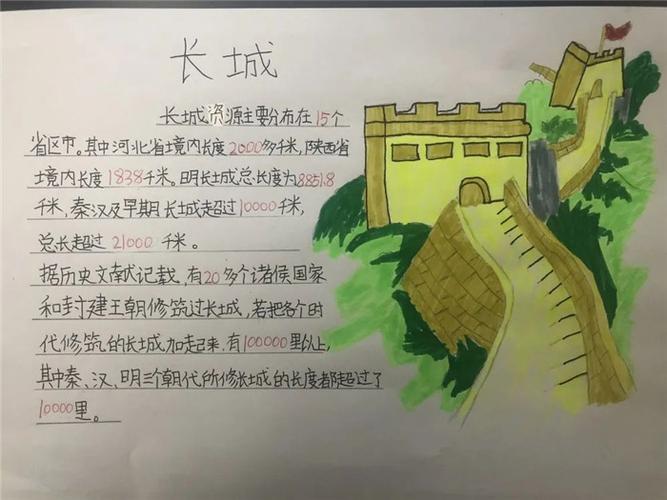 长城
长城资源主要分布在15个
省区市。其中河北省境内长度2000多千米,陕西省
境内长度1838千米。明长城总长度为8851.8
千米,秦汉及早期长城超过10000千米,
总长超过21000千米。
据历史文献记载,有20多个诸侯国家
和封建王朝修筑过长城,若把各个时
代修筑的长城加起来,有100000里以上,
其中秦、汉、明三个朝代所修长城的长度都超过了
10000里。